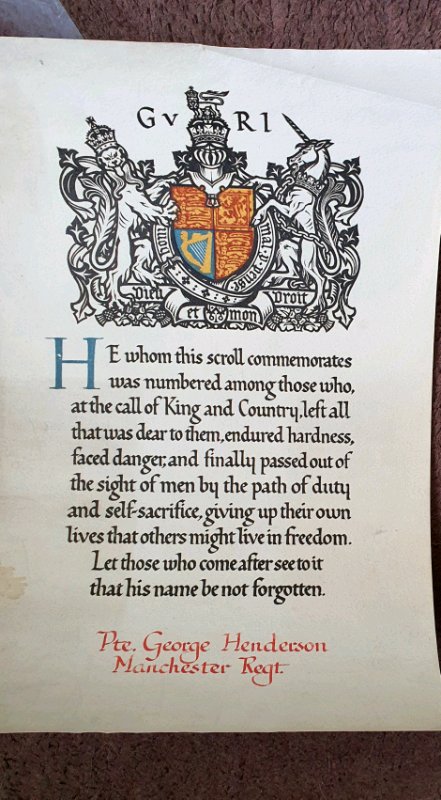 GvRI
Honi soit qui mal y pense
Dieu et mon Droit
HE whom this scroll commemorates
was numbered among those who,
at the call of King and Country, left all
that was dear to them, endured hardness,
faced danger, and finally passed out of
the sight of men by the path of duty
and self-sacrifice, giving up their own
lives that others might live in freedom.
Let those who come after see to it
that his name be not forgotten.
Pte. George Henderson
Manchester Regt.